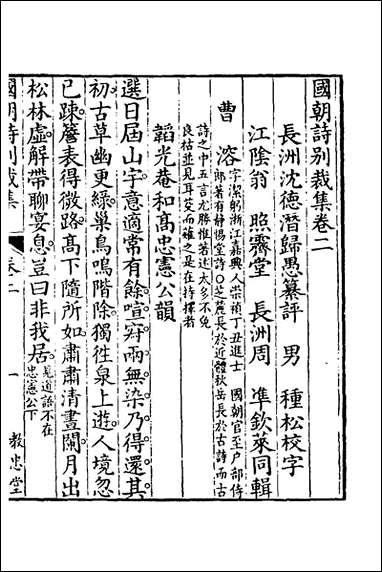 國朝詩別裁集卷二
長洲沈德潛歸愚纂評 男 種松校字
江陰翁 照霽堂 長洲周 準欽萊同輯
曹 溶 字潔躬浙江嘉興人崇禎丁丑進士 國朝官至戶部侍
郎著有靜惕堂詩○芝麓長於近體秋岳長於古詩而古
詩之中五言尤勝惟著述太多不免
良枯並見耳芟而薙之是在持擇者
韜光菴和高忠憲公韻
選日屆山宇意適常有餘喧寂兩無染乃得還其
初古草幽更綠巢鳥鳴階除獨往泉上遊人境忽
已踈簷表得微路高下隨所如肅肅清晝闌月出
松林虛解帶聊宴息豈曰非我居 見道語不在
忠憲公下
國朝詩別裁集 卷二 一 教忠堂